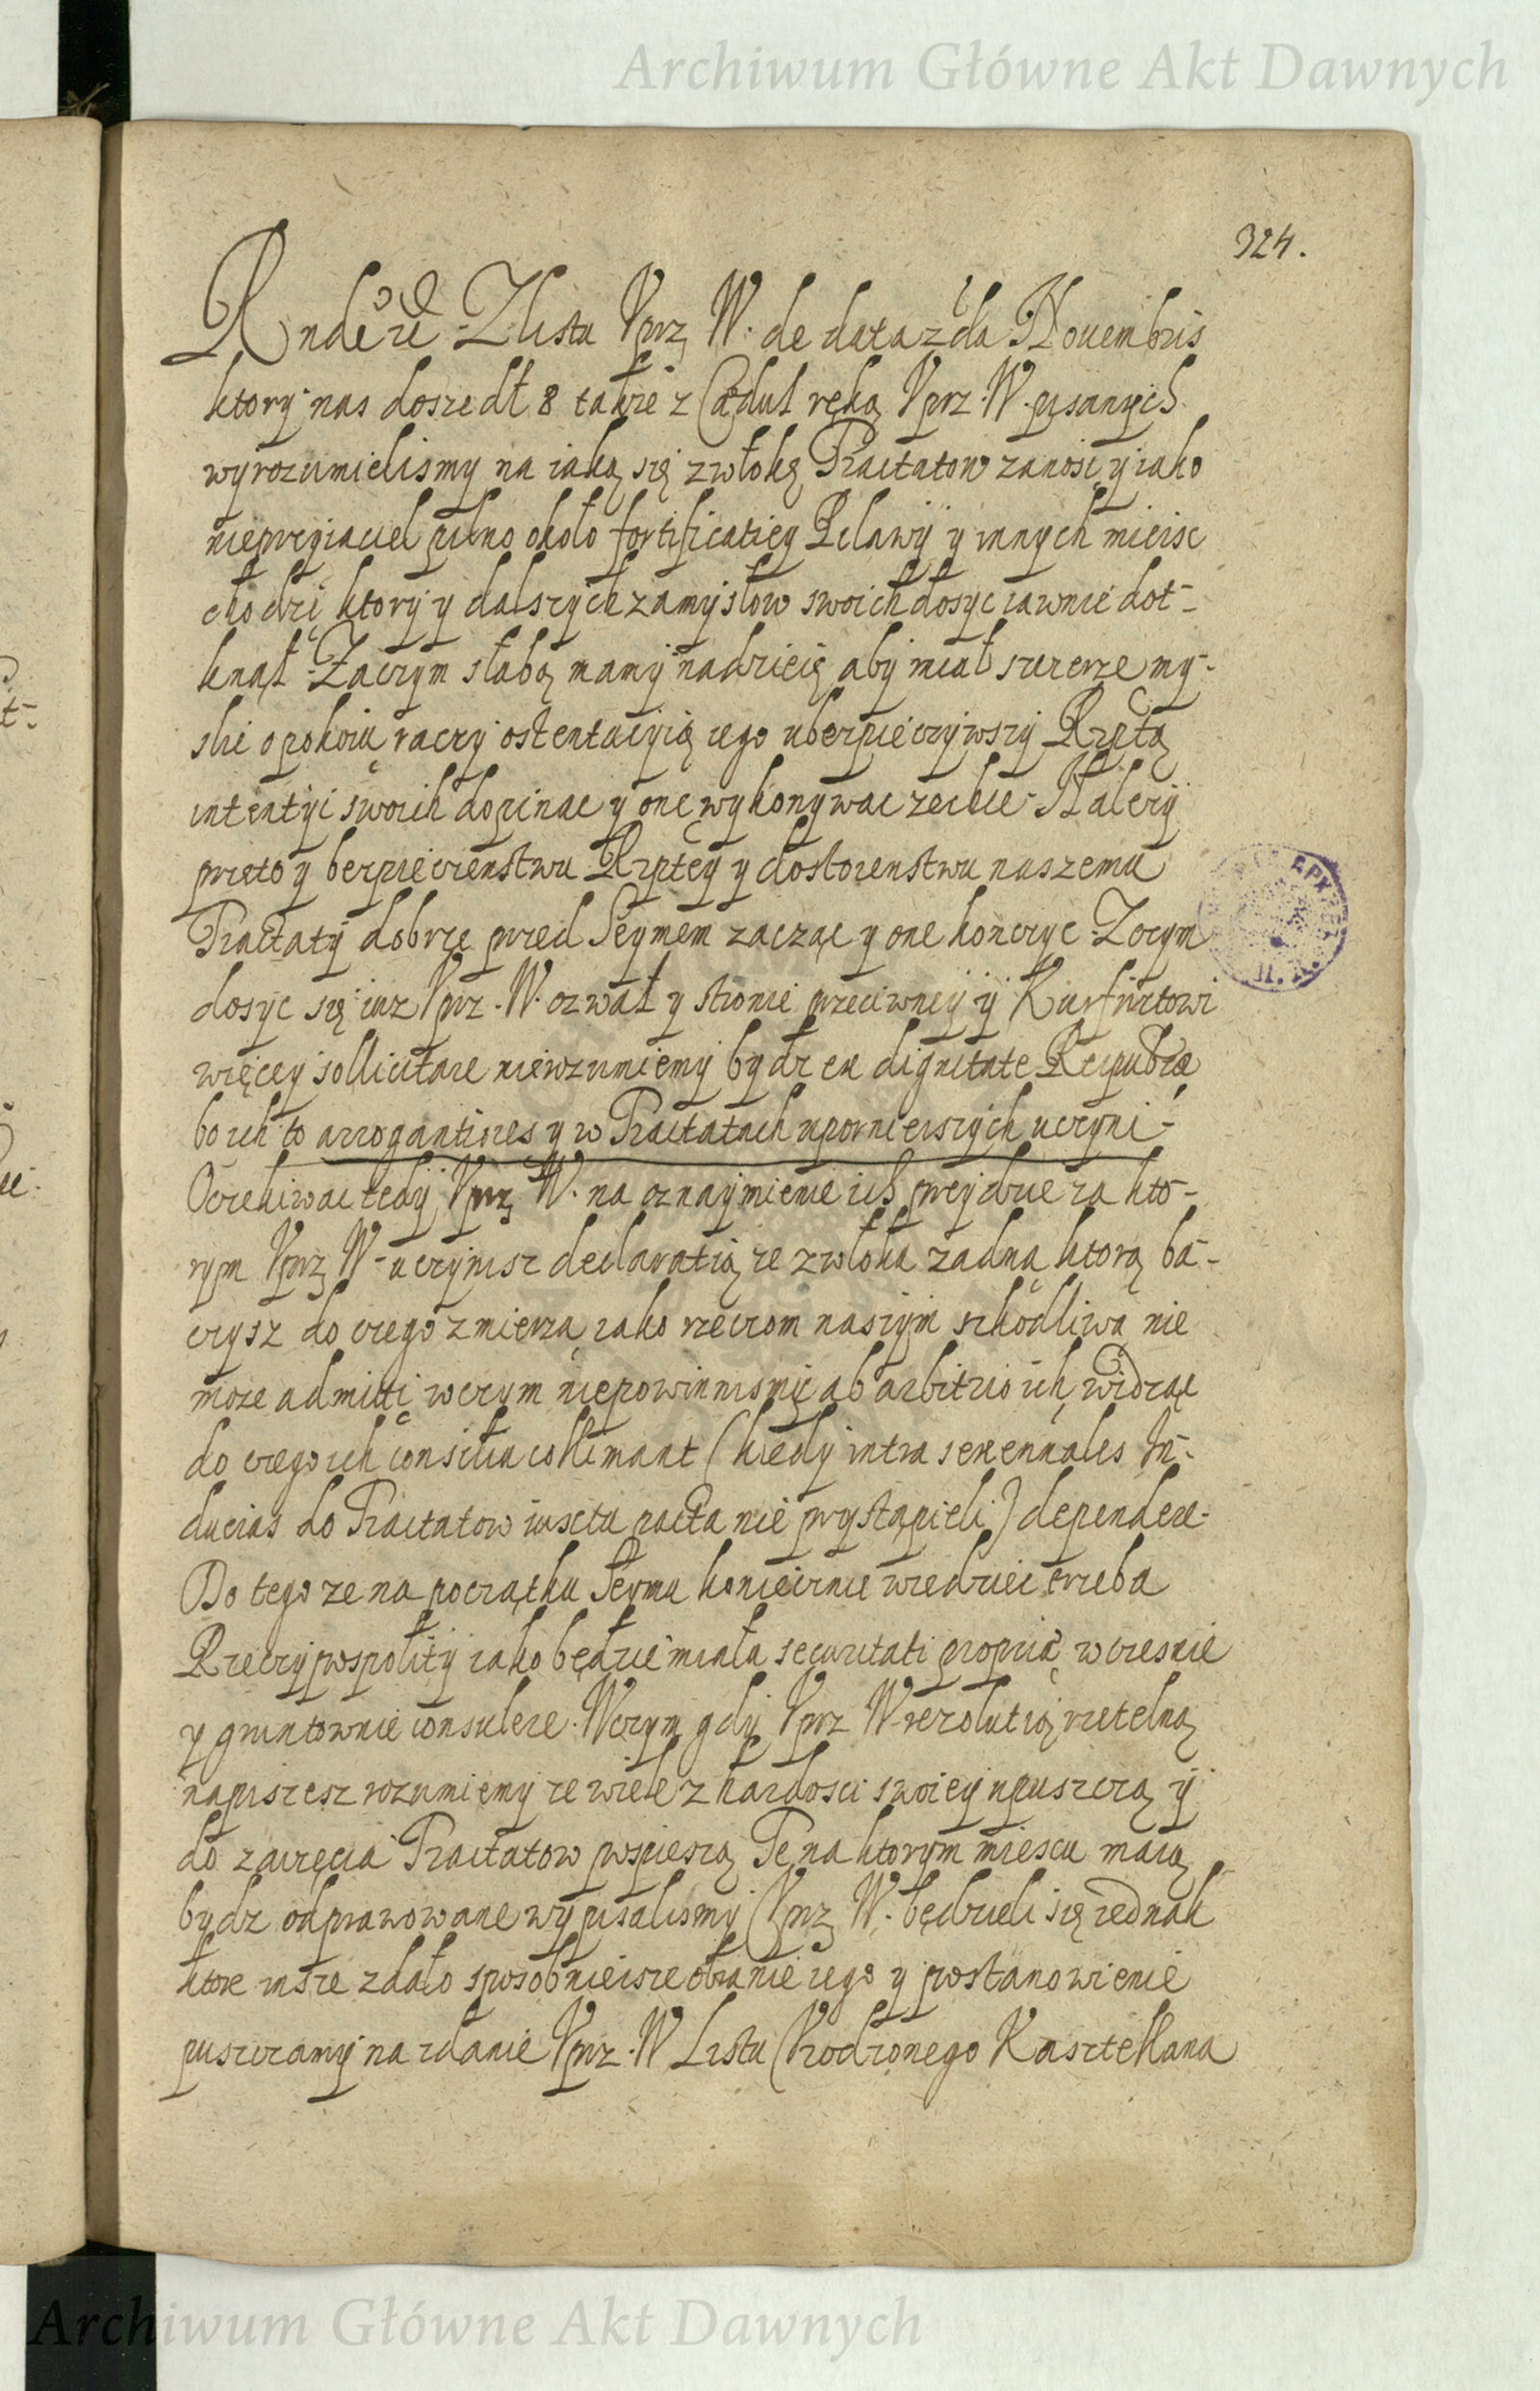 Archiwum Główne Akt Dawnych
324.
Z listu Uprz. W. de data Nouembris
ktory nas doszedł 8 także z Cædul ręką Uprz. W. pisanych
wyrozumielismy na iaką się zwłokę Tractatow zanosi y iako
nieprzyiaciel pilno około fortificatiey Pilawÿ y innych mieisc
chodzi, ktory y dalszych zamysłow swoich dosyc iawnie dot-
knął Zaczym słabą mamy nadzieię aby miał szczerze my-
slic o pokoiu raczy ostentacyią iego ubezpieczywszy Rzptą
intentyi swoich dopinac y one wykonywac zechce. Należy
przeto y bezpieczenstwu Rzptey y dostoienstwu naszemu
Tractaty dobrze przed Seymem zacząc y one konczyc Zczym
dosyc się iuz Uprz. W. ozwał y stronie przeciwney y Kurfirstowi
więcey sollicitare nierozumiemy bydz ex dignitate Reipubcæ
bo ich to arrogantiores y w Tractatach upornieiszych uczyni-
Oczekiwac tedy Uprz W. na oznaymienie ich przyidzie za kto-
rym Uprz W. uczynisz declaratią ze zwłoka zadna ktora ba-
czysz do czego zmierza iako rzeczom naszym szkodliwa nie
moze admitti, wczym niepowinnismy ab arbitrio ich, widząc
do czego ich consilia collimant (kiedy intra sexennales In-
ducias do Tractatow iuxta pacta nie przystąpieli) dependere.
Do tego ze na początku Seymu koniecznie wiedziec trzeba
Rzeczypospolity iako będzie miała securitati propriæ wczesnie
y gruntownie consulere. Wczym gdy Uprz W. rezolutią rzetelną
napiszesz rozumiemy ze wiele z hardosci swoiey upuszczą ÿ
do zaczęcia Tractatow pospieszą Te na ktorym miescu maią
bydz odprawowane wypisalismy Uprz W. będzieli się iednak
ktore insze zdało sposobnieisze obranie iego y postanowienie
puszczamy na zdanie Uprz. W Listu Urodzonego Kasztellana
Archiwum Główne Akt Dawnych